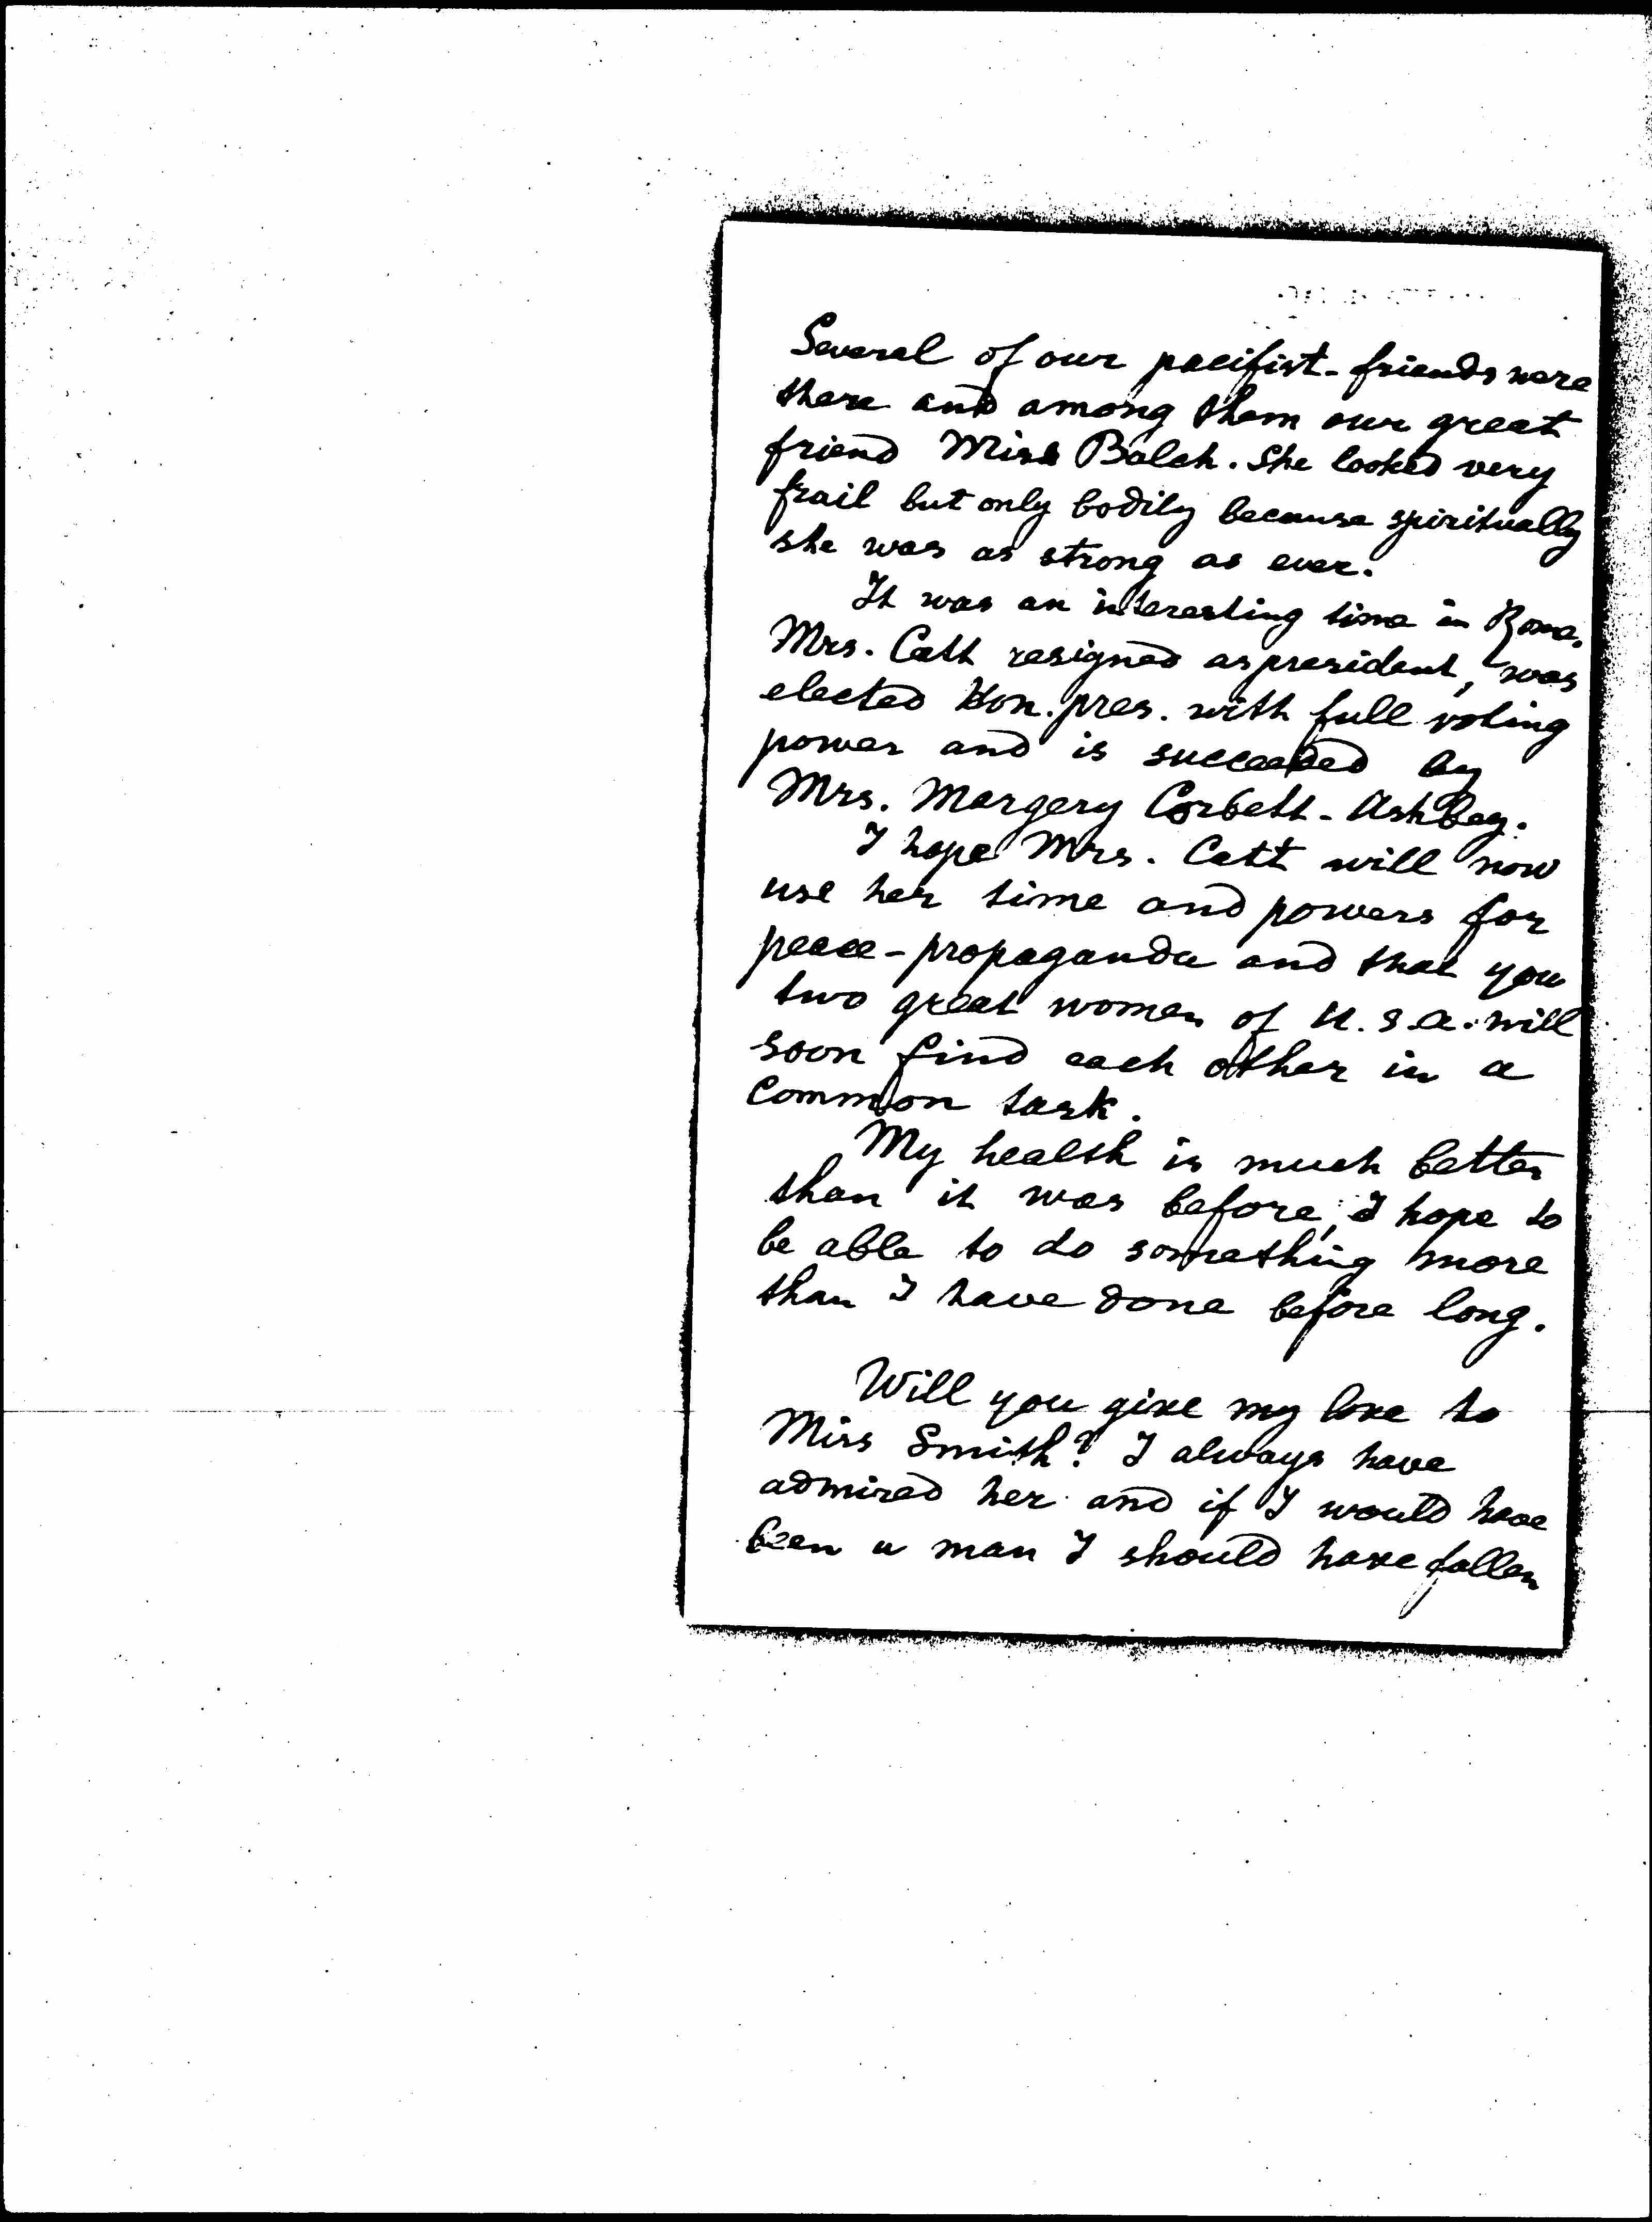 Several of our pacifist-friends were
there and among them our great
friend Miss Balch. She looked very
frail but only bodily because spiritually
she was as strong as ever.
It was an interesting time in Rome.
Mrs. Catt resigned as president, was
elected Hon. pres. with full voting
power and is succeeded by
Mrs. Margery Corbett-Ashbey.
I hope Mrs. Catt will now
use her time and powers for
peace-propaganda and that you
two great women of U.S.A. will
soon find each other in a
common task.
My health is much better
than it was before, I hope to
be able to do something more
than I have done before long.
Will you give my love to
Miss Smith? I always have
admired her and if I would have
been a man I should have fallen